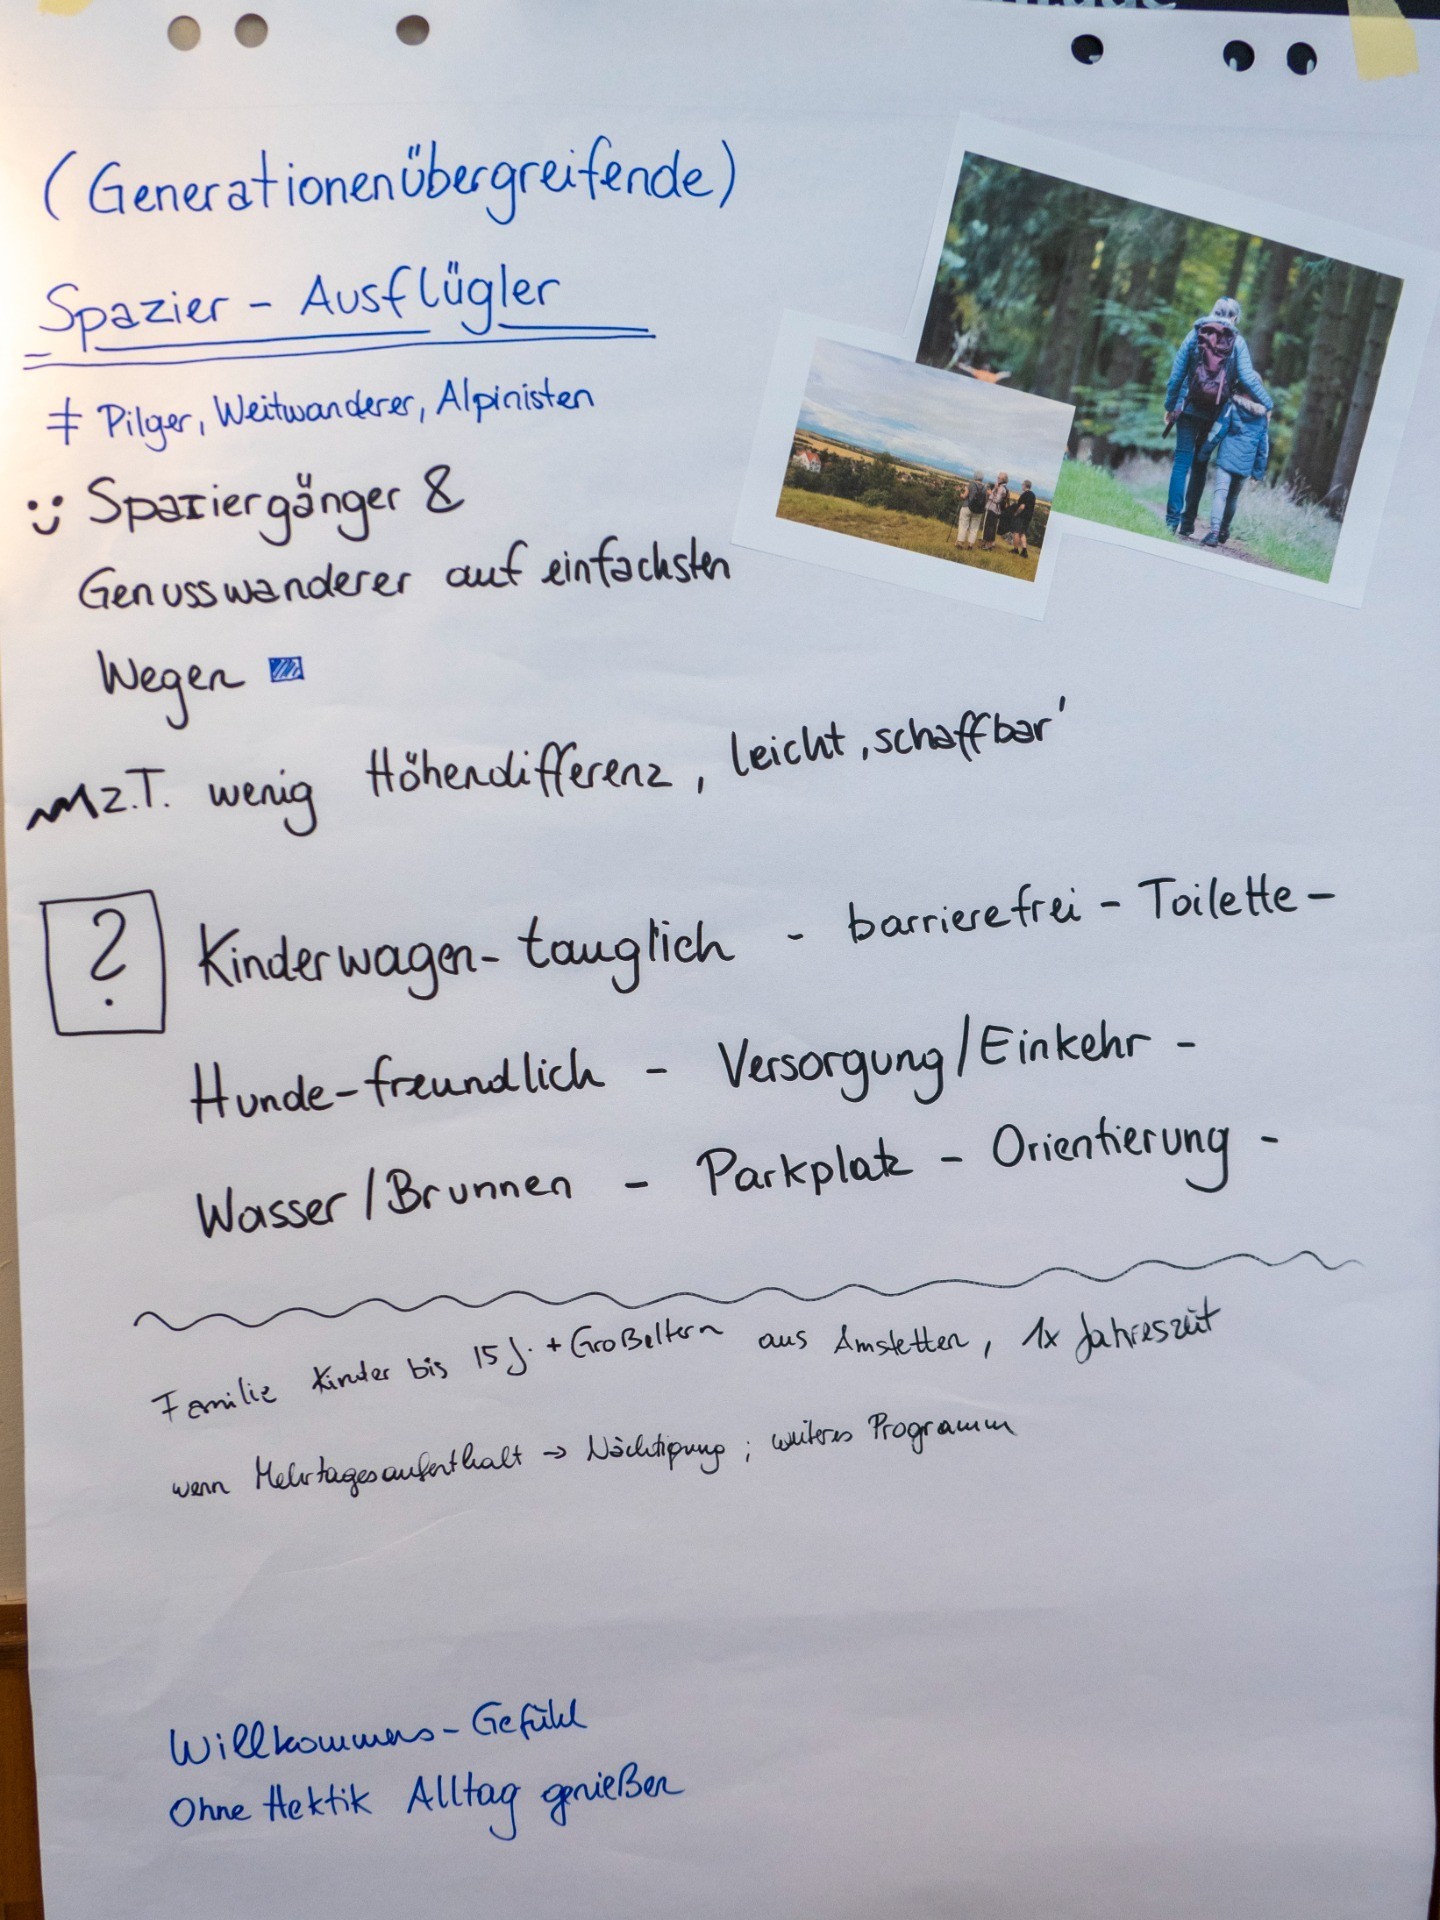 (Generationenübergreifende)
Spazier - Ausflügler
≠ Pilger, Weitwanderer, Alpinisten
Spaziergänger &
Genusswanderer auf einfachsten
Wegen
z.T. wenig Höhendifferenz, leicht ‚schaffbar'
? Kinderwagen-tauglich - barrierefrei - Toilette -
Hunde-freundlich - Versorgung/Einkehr -
Wasser/Brunnen - Parkplatz - Orientierung -
Familie Kinder bis 15 J. + Großeltern aus Amstetten, 1x Jahreszeit
wenn Mehrtagesaufenthalt → Nächtigung; weiteres Programm
Willkommens-Gefühl
Ohne Hektik Alltag genießen